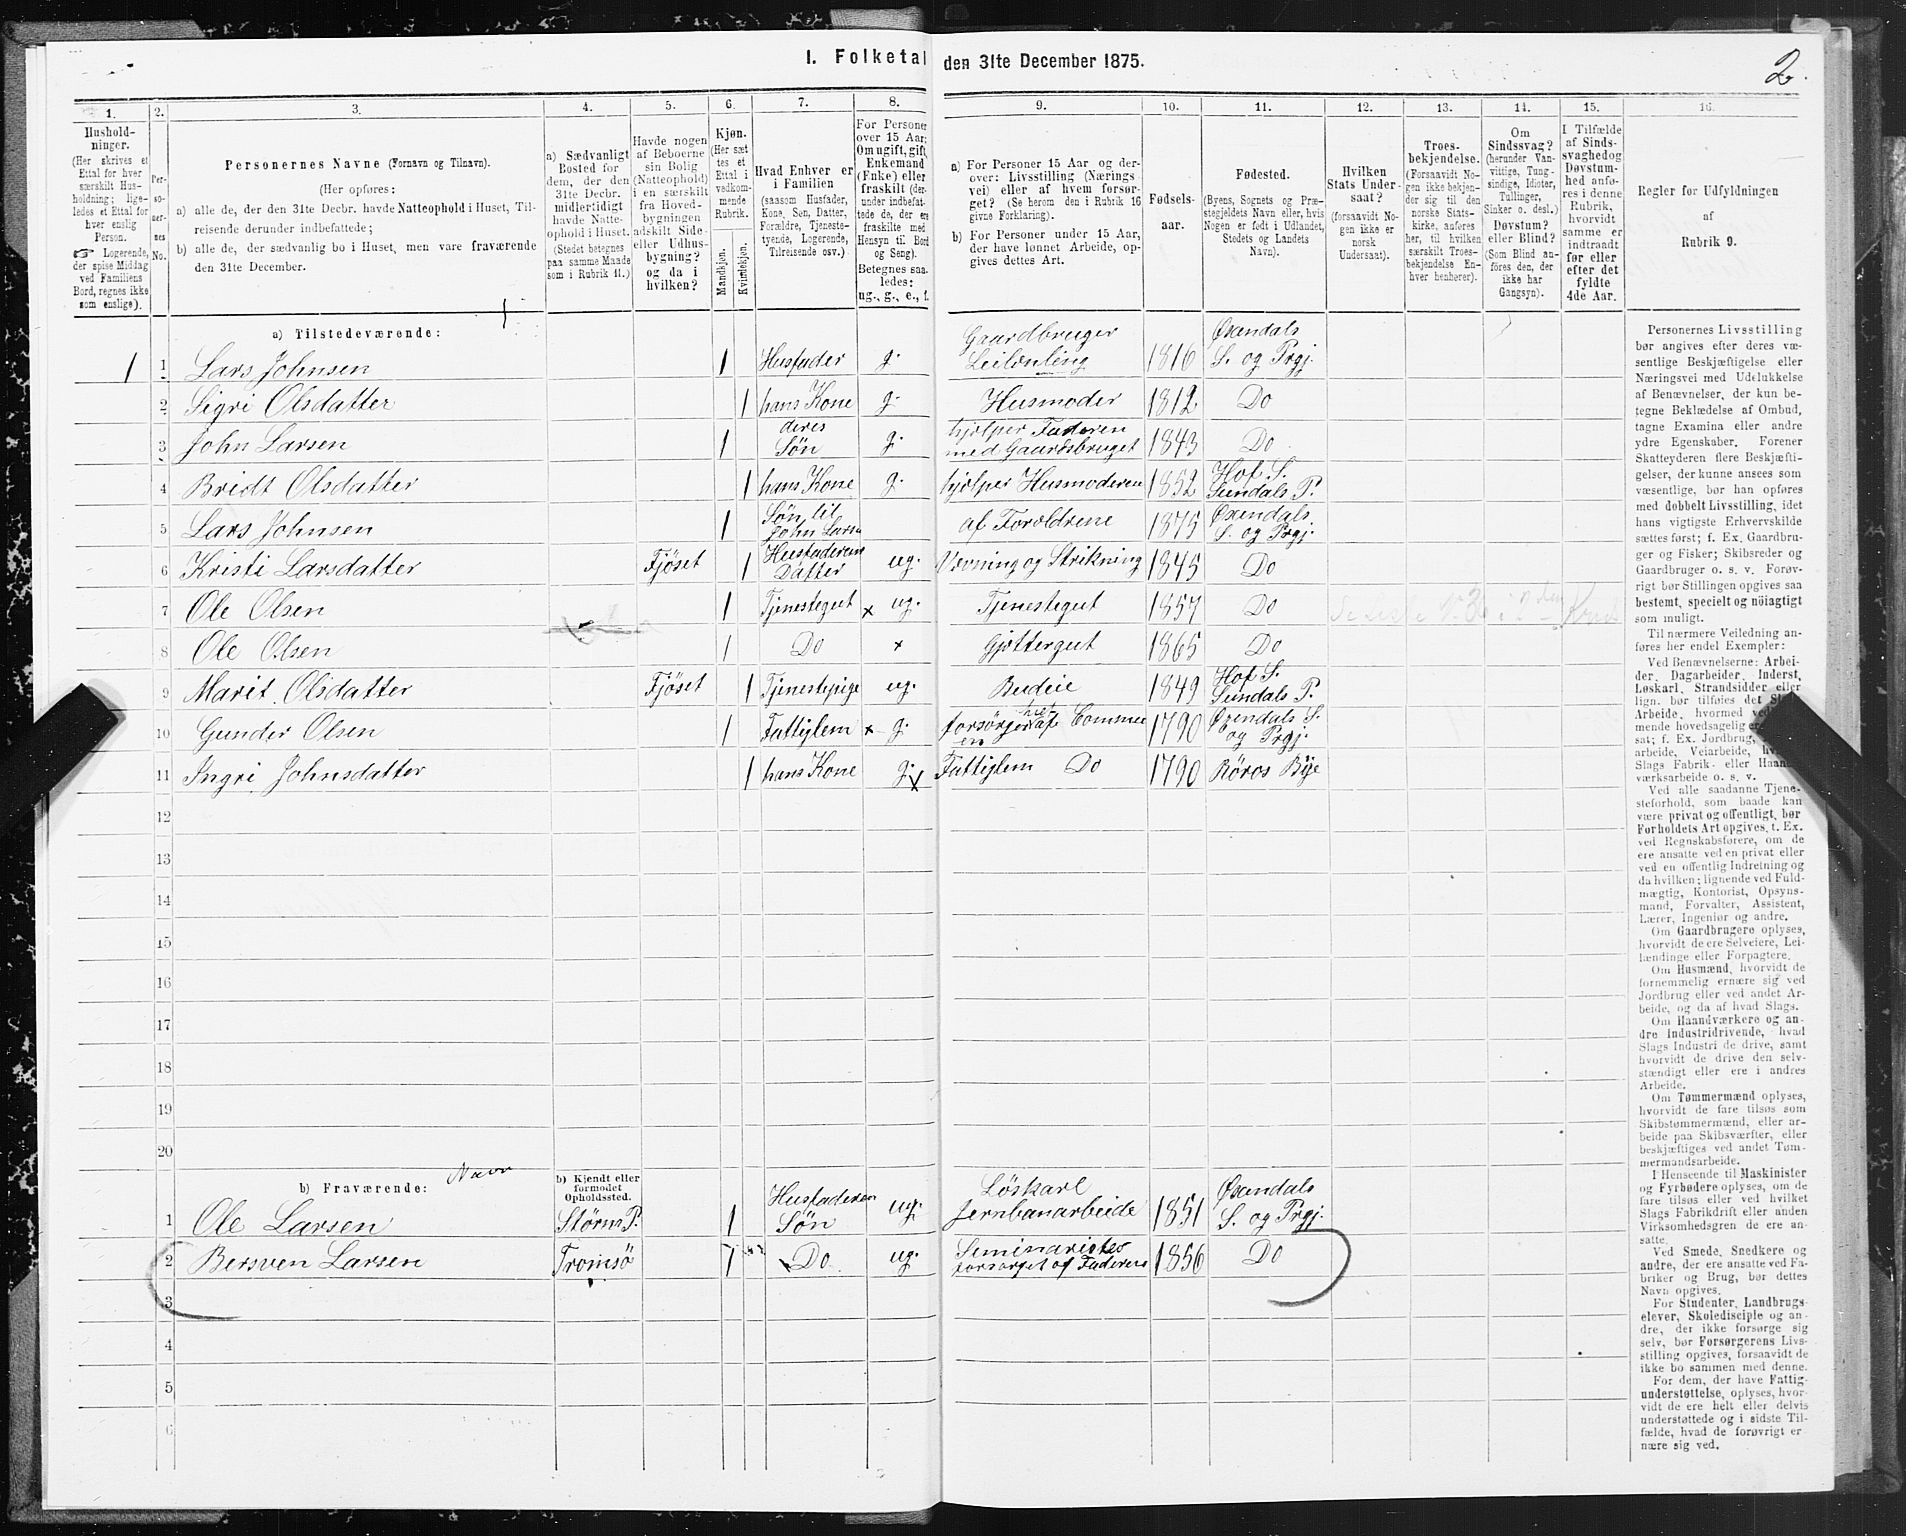 I. Folketal den 31te December 1875.
2.
1.
Hushold-
ninger.
(Her skrives et
Ettal for hver
særskilt Hus-
holdning; lige-
ledes et Ettal for
hver enslig
Person.
☞ Logerende,
der spise Middag
ved Familiens
Bord, regnes ikke
som enslige).
2.
Per-
so-
ner-
nes
No.
3.
Personernes Navne (Fornavn og Tilnavn).
(Her opføres:
a) alle de, der den 31te Decbr. havde Natteophold i Huset, Til-
reisende derunder indbefattede;
b) alle de, der sædvanlig bo i Huset, men vare fraværende
den 31te December.
4.
a) Sædvanligt
Bosted for
dem, der den
31te Decbr.
midlertidigt
havde Natte-
ophold i Huset.
(Stedet betegnes
paa samme Maade
som i Rubrik 11.)
5.
Havde nogen
af Beboerne
sin Bolig
(Natteophold)
i en særskilt
fra Hoved-
bygningen
adskilt Side-
eller Udhus-
bygning?
og da i
hvilken?
6.
Kjøn.
(Her sæt-
tes et
Ettal i
vedkom-
mende
Rubrik.
Mandkjøn.
Kvindekjøn.
7.
Hvad Enhver er
i Familien
(saasom Husfader,
Kone, Søn, Datter,
Forældre, Tjeneste-
tyende, Logerende,
Tilreisende osv.)
8.
For Personer
over 15 Aar:
Om ugift, gift,
Enkemand
(Enke) eller
fraskilt (der-
under indbefat-
tede de, der ere
fraskilte med
Hensyn til Bord
og Seng).
Betegnes saa-
ledes:
ug., g., e., f.
9.
a) For Personer 15 Aar og der-
over: Livsstilling (Nærings-
vei) eller af hvem forsør-
get? (Se herom den i Rubrik 16
givne Forklaring).
b) For Personer under 15 Aar,
der have lønnet Arbeide, op-
gives dettes Art.
10.
Fødsels-
aar.
11.
Fødested.
(Byens, Sognets og Præ-
stegjeldets Navn eller, hvis
Nogen er født i Udlandet,
Stedets og Landets
Navn).
12.
Hvilken
Stats Under-
saat?
(forsaavidt No-
gen ikke er
norsk
Undersaat).
13.
Troes-
bekjendelse.
(Forsaavidt No-
gen ikke bekjen-
der sig til den
norske Stats-
kirke, anføres
her, til hvilken
særskilt Troes-
bekjendelse En-
hver henhører).
14.
Om
Sindssvag?
(herunder Van-
vittige, Tung-
sindige, Idioter,
Tullinger,
Sinker o. desl.)
Døvstum?
eller Blind?
(Som Blind an-
føres den, der
ikke har
Gangsyn).
15.
I Tilfælde
af Sinds-
svaghed og
Døvstum-
hed anfø-
res i denne
Rubrik,
hvorvidt
samme er
indtraadt
før eller
efter det
fyldte
4de Aar.
16.
Regler for Udfyldningen
af
Rubrik 9.
a) Tilstedeværende:
1 1 Lars Johnsen 1 Husfader g. Gaardbruger Leilenling 1816 Øxendals S. og Prgj.
2 Sigri Olsdatter 1 hans Kone g. Husmoder 1812 Do
3 John Larsen 1 deres Søn g. hjelper Faderen med Gaardsbruget 1843 Do
4 Bridt Olsdatter 1 hans Kone g. hjelper Husmoderen 1852 Hof S. Sundals P.
5 Lars Johnsen 1 Søn til John Larsn af Foreldrene 1875 Øxendals S. og Prgj.
6 Kristi Larsdatter Fjöset 1 Husfaderen Datter ug. Vevning og Strikning 1845 Do
7 Ole Olsen 1 Tjenestegut x ug. Tjenestegut 1857 Do
8 Ole Olsen 1 Do x Gjettergut 1865 Do
9 Marit Olsdatter Fjöset 1 Tjenestepige ug. Budeie 1849 Hof S. Sundals P.
10 Gunder Olsen 1 Fattiglem x g. forsörges af Commuen 1790 Øxendals S. og Prgj.
11 Ingri Johnsdatter 1 hans Kone g. x Fattiglem Do 1790 Röros Bye
12
13
14
15
16
17
18
19
20
b) Fraværende: Navn
b) Kjendt eller
formodet
Opholdssted.
1 Ole Larsen Størens P. 1 Husfaderen Søn ug. Löskarl Jernbanarbeide 1851 Øxendals S. og Prgj.
2 Bersven Larsen Tromsö 1 Do ug. Seminarister forsorget af Faderen 1856 Do
3
4
5
6
Personernes Livsstilling
bør angives efter deres væ-
sentlige Beskjæftigelse eller
Næringsvei med Udelukkelse
af Benævnelser, der kun be-
tegne Beklædelse af Ombud,
tagne Examina eller andre
ydre Egenskaber. Forener
Skatteyderen flere Beskjæfti-
gelser, der kunne ansees som
væsentlige, bør han opføres
med dobbelt Livsstilling, idet
hans vigtigste Erhvervskilde
sættes først; f. Ex. Gaardbru-
ger og Fisker; Skibsreder og
Gaardbruger o. s. v. Forøv-
rigt bør Stillingen opgives saa
bestemt, specielt og nöiagtigt
som muligt.
Til nærmere Veiledning an-
føres her endel Exempler:
Ved Benævnelserne: Arbei-
der, Dagarbeider, Inderst,
Løskarl, Strandsidder eller
lign. bør tilføies det Slags
Arbeide, hvormed ved
mende hovedsagelig er
sat; f. Ex. Jordbrug,
arbeide, Veiarbeide,
Slags Fabrik- eller Haand-
værksarbeide o. s. v.
Ved alle saadanne Tjene-
steforhold, som baade kan
være privat og offentligt, bør
Forholdets Art opgives, t. Ex.
ved Regnskabsførere, om de
ere ansatte ved en privat eller
ved en offentlig Indretning og
da hvilken; lignende ved Fuld-
mægtig, Kontorist, Opsyns-
mand, Forvalter, Assistent,
Lærer, Ingeniør og andre.
Om Gaardbrugere oplyses,
hvorvidt de ere Selveiere, Lei-
lændinge eller Forpagtere.
Om Husmænd, hvorvidt de
fornemmelig ernære sig ved
Jordbrug eller ved andet Ar-
beide, og da af hvad Slags.
Om Haandværkere og an-
dre Industridrivende, hvad
Slags Industri de drive, samt
hvorvidt de drive den selv-
stændigt eller ere i andres
Arbeide.
Om Tømmermænd oplyses,
hvorvidt de fare tilsøs som
Skibstømmermænd, eller ar-
beide paa Skibsværfter, eller
beskjæftiges ved andet Tøm-
mermandsarbeide.
I Henseende til Maskinister
og Fyrbødere oplyses, om de
fare tilsøs eller ved hvilket
Slags Fabrikdrift eller anden
Virksomhedsgren de ere an-
satte.
Ved Smede, Snedkere og
andre, der ere ansatte ved Fa-
briker og Brug, bør dettes
Navn opgives.
For Studenter, Landbrugs-
elever, Skoledisciple og an-
dre, der ikke forsørge sig
selv, bør Forsørgerens Livs-
stilling opgives, forsaavidt de
ikke bo sammen med denne.
For dem, der have Fattig-
understøttelse, oplyses, hvor-
vidt de ere helt eller delvis
understøttede og i sidste Til-
fælde, hvad de forøvrigt er-
nære sig ved.